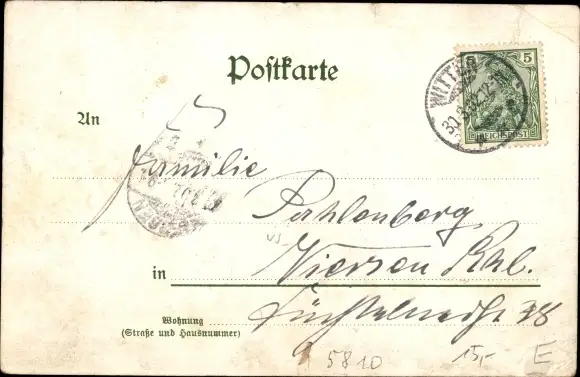 Postkarte
5 5
WITTEN
REICHSPOST
An
Familie
Pahlenberg
in Viersen Rhl.
Wohnung
(Straße und Hausnummer)
38
5810 15,- E